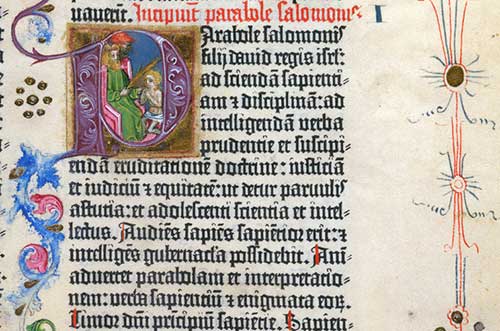 uauerit. Incipiunt parabole salomonis I
PArabole salomonis
filij dauid regis isrl:
ad sciendā sapienti-
am ⁊ disciplinā: ad
intelligendā verba
prudentie et suscipi-
endā eruditationē doctrine: iusticiā
et iudiciū ⁊ equitatē: ut detur paruulis
astutia: et adolescenti scientia et intel-
lectus. Audiēs sapiēs sapientior erit: ⁊
intelligēs gubernacla possidebit. Ani-
aduertet parabolam et interpretatio-
nem: verba sapientiū et enigmata eoꝝ.
Timor dnī principiū sapiētie. Sapien-